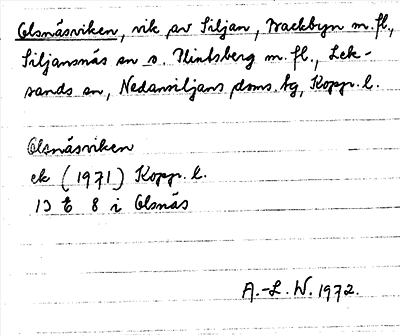 Olsnäsviken, vik av Siljan, Backbyn m.fl.,
Siljansnäs sn o. Plintsberg m.fl., Lek-
sands sn, Nedansiljans doms. tg, Kopp. l.
Olsnäsviken
ek (1971) Kopp. l.
13 E 8 i Olsnäs
A.-L. W. 1972.